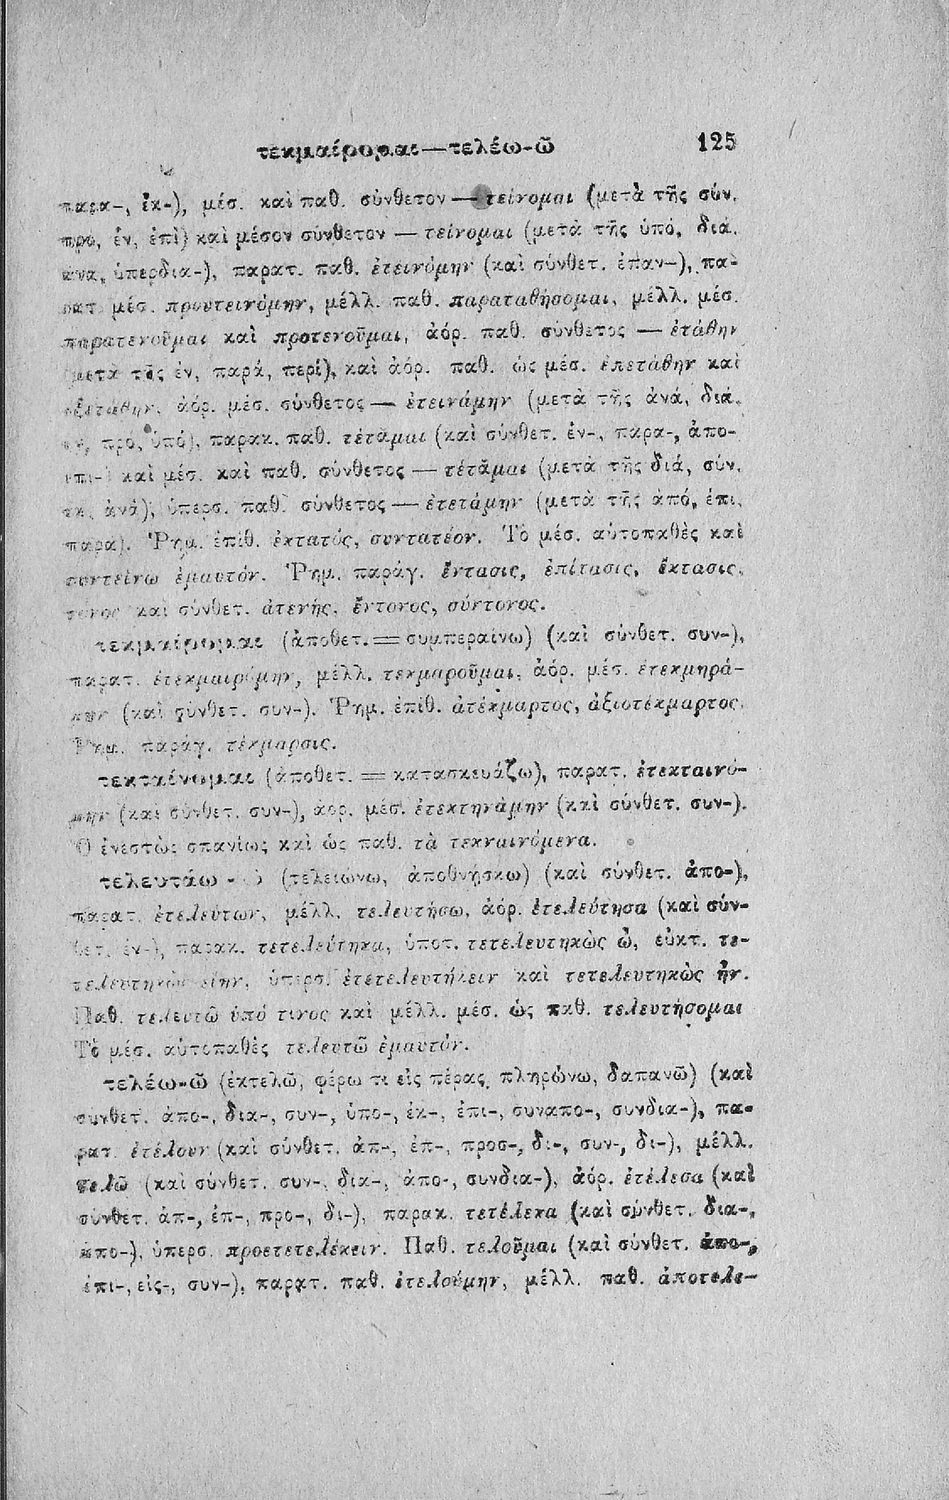 τεκμαίρομαι—τελέω-ῶ 125
παρα-, ἐκ-), μέσ. καὶ παθ. σύνθετον — τείνομαι (μετὰ τῆς σύν,
πρό, ἐν, ἐπί) καὶ μέσον σύνθετον — τείνομαι (μετὰ τῆς ὑπό, διά,
ἀνα, ὑπερδια-), παρατ. παθ. ἐτεινόμην (καὶ σύνθετ. ἐπαν-), πα-
ρατ. μέσ. προυτεινόμην, μέλλ. παθ. παραταθήσομαι, μέλλ. μέσ.
παρατενοῦμαι καὶ προτενοῦμαι, ἀόρ. παθ. σύνθετος — ἐτάθην
(μετὰ τῆς ἐν, παρά, περί), καὶ ἀόρ. παθ. ὡς μέσ. ἐπετάθην καὶ
ἐξετάθην, ἀόρ. μέσ. σύνθετος — ἐτεινάμην (μετὰ τῆς ἀνά, διά,
ἐν, πρό, ὑπό), παρακ. παθ. τέτᾰμαι (καὶ σύνθετ. ἐν-, παρα-, ἀπο-
ἐπι-) καὶ μέσ. καὶ παθ. σύνθετος — τέτᾰμαι (μετὰ τῆς διά, σύν,
ἐκ, ἀνά), ὑπερσ. παθ. σύνθετος — ἐτετάμην (μετὰ τῆς ἀπό, ἐπι,
παρα). Ῥημ. ἐπίθ. ἐκτατός, συντατέον. Τὸ μέσ. αὐτοπαθὲς καὶ
συντείνω ἐμαυτόν. Ῥημ. παράγ. ἔντασις, ἐπίτασις, ἔκτασις,
τόνος καὶ σύνθετ. ἀτενής, ἔντονος, σύντονος.
τεκμαίρομαι (ἀποθετ. = συμπεραίνω) (καὶ σύνθετ. συν-),
παρατ. ἐτεκμαιρόμην, μέλλ. τεκμαροῦμαι, ἀόρ. μέσ. ἐτεκμηρά-
μην (καὶ σύνθετ. συν-). Ῥημ. ἐπίθ. ἀτέκμαρτος, ἀξιοτέκμαρτος.
Ῥημ. παράγ. τέκμαρσις.
τεκταίνομαι (ἀποθετ. = κατασκευάζω), παρατ. ἐτεκταινό-
μην (καὶ σύνθετ. συν-), ἀορ. μέσ. ἐτεκτηνάμην (καὶ σύνθετ. συν-).
Ὁ ἐνεστὼς σπανίως καὶ ὡς παθ. τὰ τεκναινόμενα.
τελευτάω - ῶ (τελειώνω, ἀποθνήσκω) (καὶ σύνθετ. ἀπο-),
παρατ. ἐτελεύτων, μέλλ. τελευτήσω, ἀόρ. ἐτελεύτησα (καὶ σύν-
θετ. ἐν-), παρακ. τετελεύτηκα, ὑποτ. τετελευτηκὼς ὦ, εὐκτ. τε-
τελευτηκὼς εἴην, ὑπερσ. ἐτετελευτήκειν καὶ τετελευτηκὼς ἦν.
Παθ. τελευτῶ ὑπό τινος καὶ μέλλ. μέσ. ὡς παθ. τελευτήσομαι
Τὸ μέσ. αὐτοπαθὲς τελευτῶ ἐμαυτόν.
τελέω-ῶ (ἐκτελῶ, φέρω τι εἰς πέρας, πληρώνω, δαπανῶ) (καὶ
σύνθετ. ἀπο-, δια-, συν-, ὑπο-, ἐκ-, ἐπι-, συναπο-, συνδια-), πα-
ρατ. ἐτέλουν (καὶ σύνθετ. ἀπ-, ἐπ-, προσ-, δι-, συν-, δι-), μέλλ.
τελῶ (καὶ σύνθετ. συν-, δια-, ἀπο-, συνδια-), ἀόρ. ἐτέλεσα (καὶ
σύνθετ. ἀπ-, ἐπ-, προ-, δι-), παρακ. τετέλεκα (καὶ σύνθετ. δια-,
ἀπο-), ὑπερσ. προετετελέκειν. Παθ. τελοῦμαι (καὶ σύνθετ. ἀπο-,
ἐπι-, εἰς-, συν-), παρατ. παθ. ἐτελούμην, μέλλ. παθ. ἀποτελε-